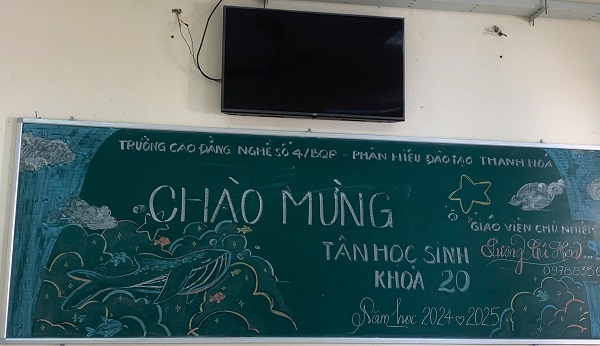 TRƯỜNG CAO ĐẲNG NGHỀ SỐ 4/BQP - PHÂN HIỆU ĐÀO TẠO THANH HOÁ
CHÀO MỪNG
TÂN HỌC SINH
KHÓA 20
Năm học 2024 2025
GIÁO VIÊN CHỦ NHIỆM